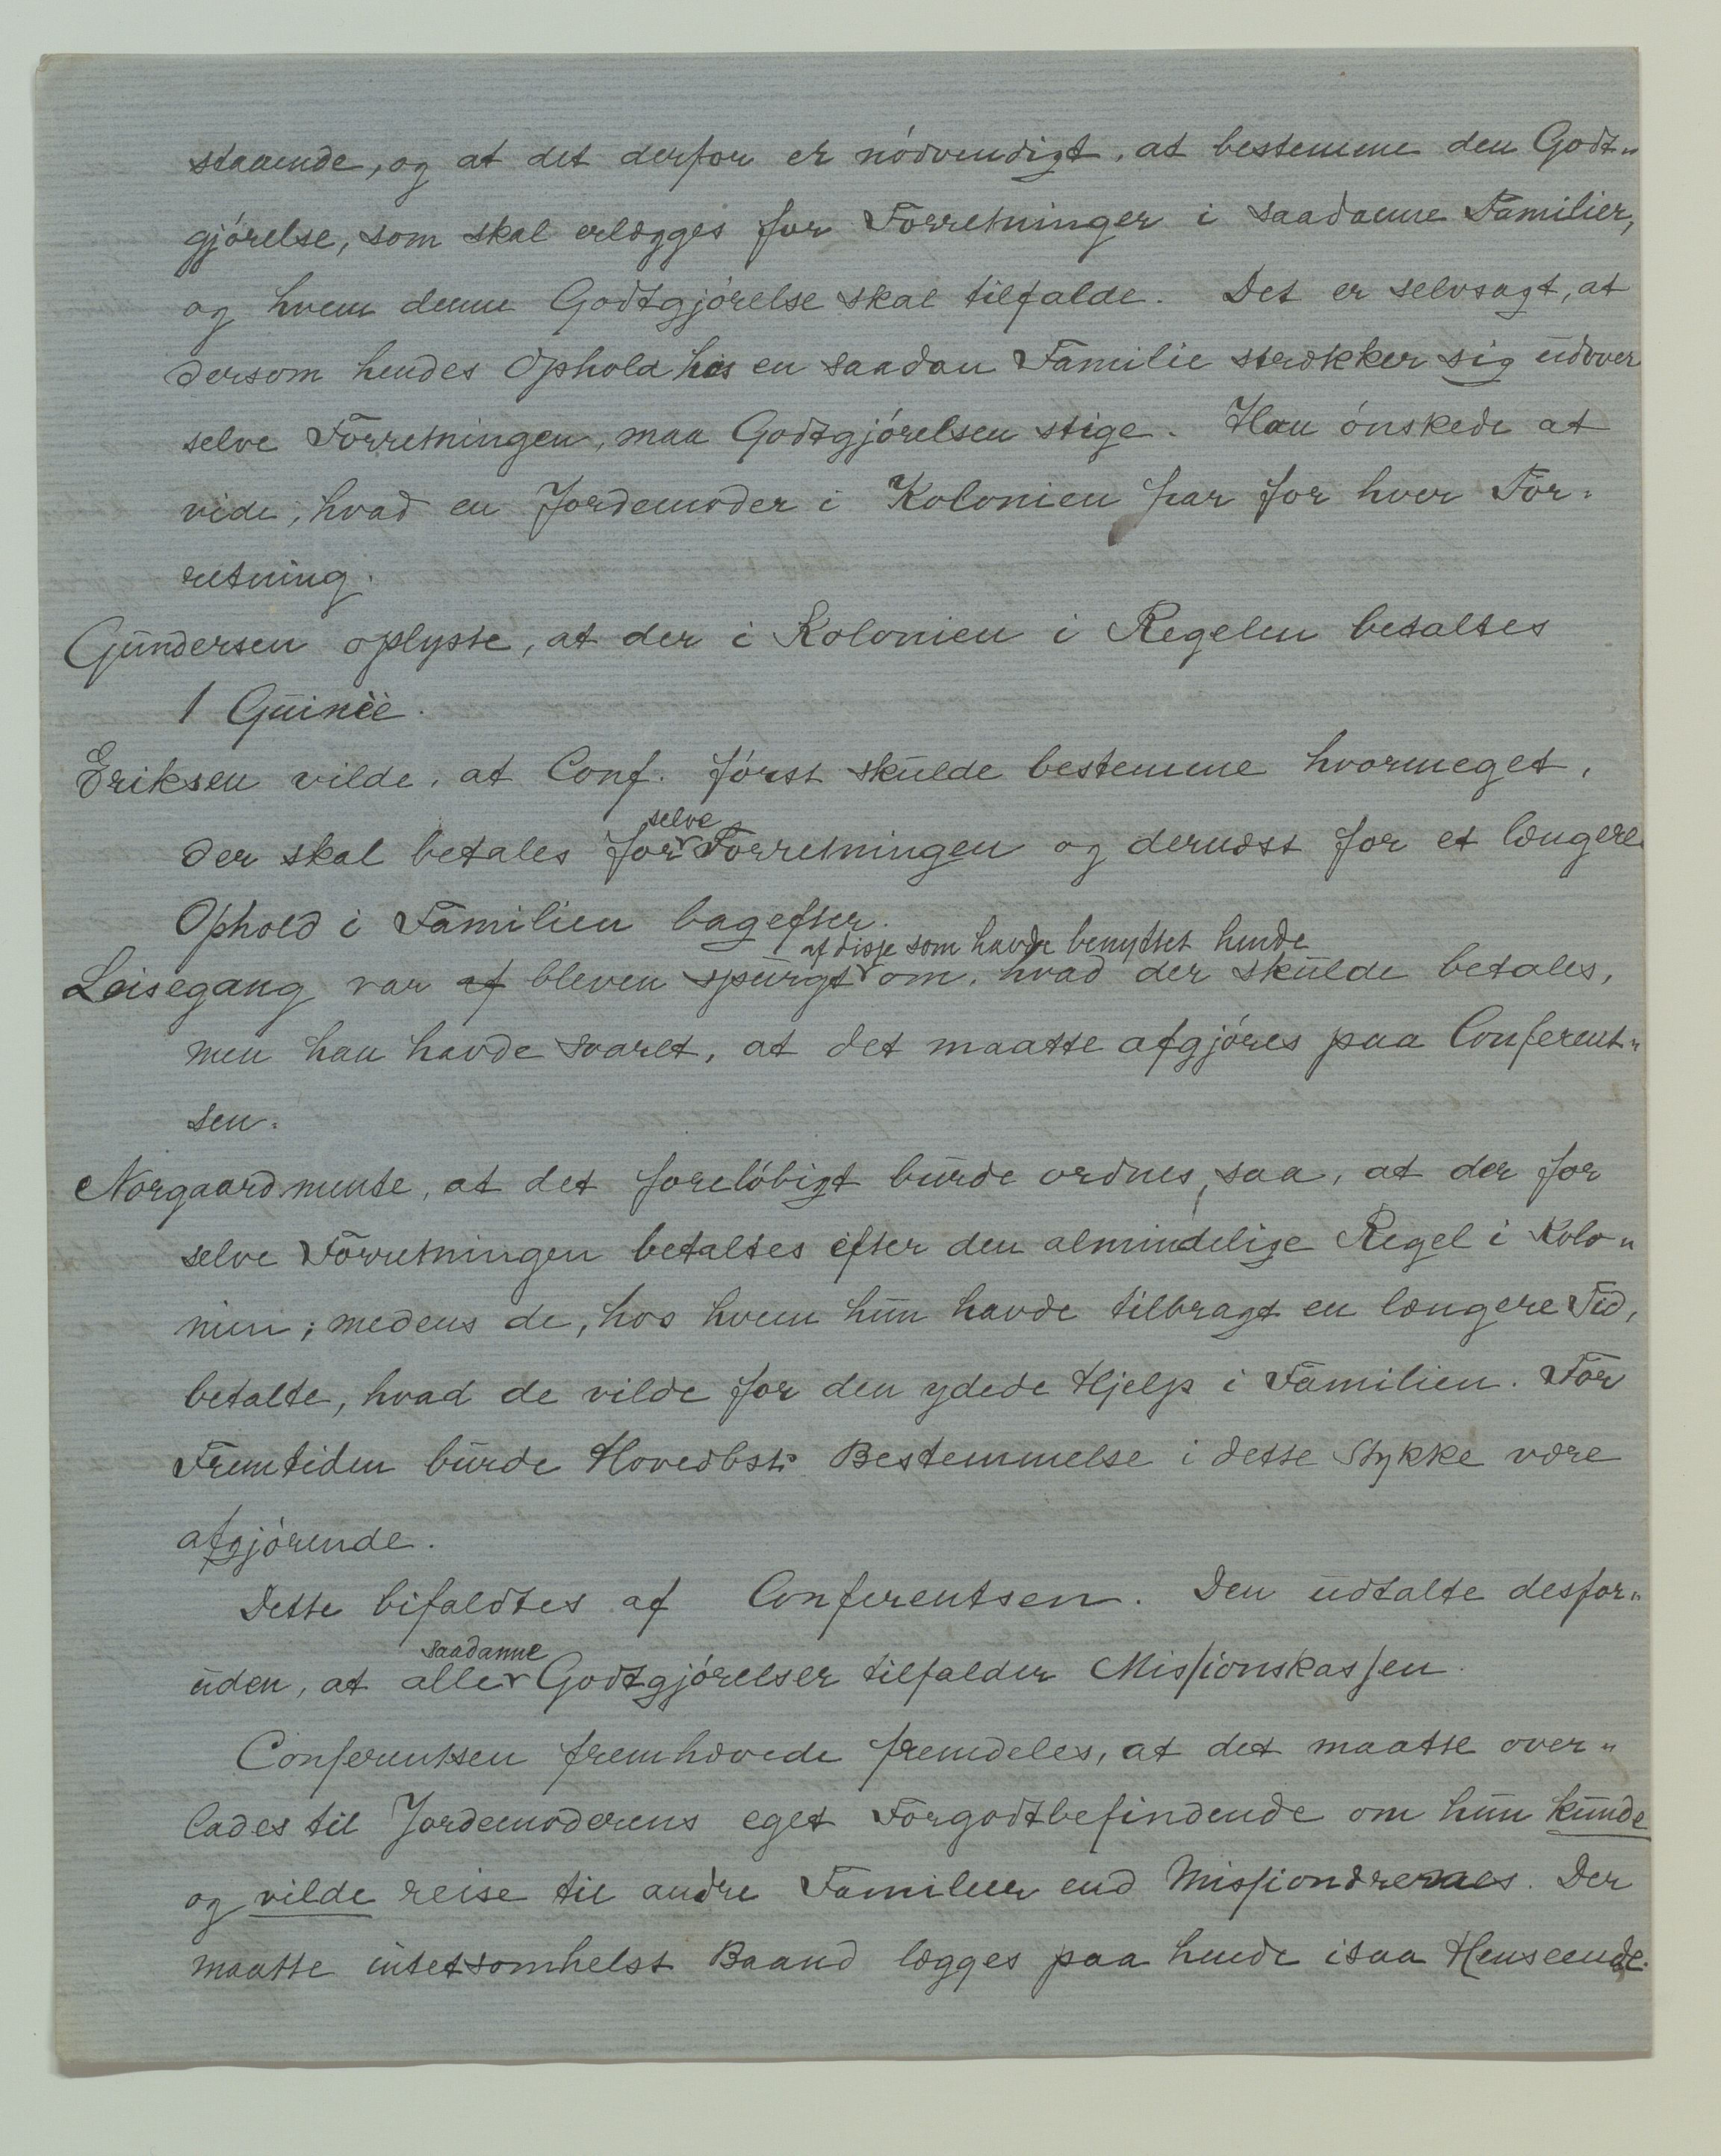 staaende, og at det derfor er nódvendigt, at bestemme den Godt„
gjórelse, som skal erlægges for Forretninger i saadanne Familier,
og hvem denne Godtgjórelse skal tilfalde. Det er selvsagt, at
dersom hendes Ophold hos en saadan Familie strækker sig udover
selve Forretningen, maa Godtgjórelsen stige. Han ónskede at
vide, hvad en Jordemoder i Kolonien faar for hver For-
retning.
Gundersen oplyste, at der i Kolonien i Regelen betaltes
1 Guinèè.
Eriksen vilde, at Conf. fórst skulde bestemme hvormeget,
der skal betales for selve Forretningen og dernæst for et længere
Ophold i Familien bagefter.
af disse som havde benyttet hende
Leisegang var af bleven spurgt om, hvad der skulde betales,
men han havde svaret, at det maatte afgjóres paa Conferent„
sen.
Norgaard mente, at det forelóbigt burde ordnes saa, at der for
selve Forretningen betaltes efter den almindelige Regel i Kolo„
nien; medens de, hos hvem hun havde tilbragt en længere Tid,
betalte, hvad de vilde for den ydede Hjelp i Familien. For
Fremtiden burde Hovedbst. Bestemmelse i dette Stykke være
afgjórende.
Dette bifaldtes af Conferentsen. Den udtalte desfor„
uden, at alle saadanne Godtgjórelser tilfalder Missionskassen.
Conferentsen fremhævede fremdeles, at det maatte over„
lades til Jordemoderens eget Forgodtbefindende om hun kunde
og vilde reise til andre Familier end Missionærernes. Der
maatte intetsomhelst Baand lægges paa hende i saa Henseende.